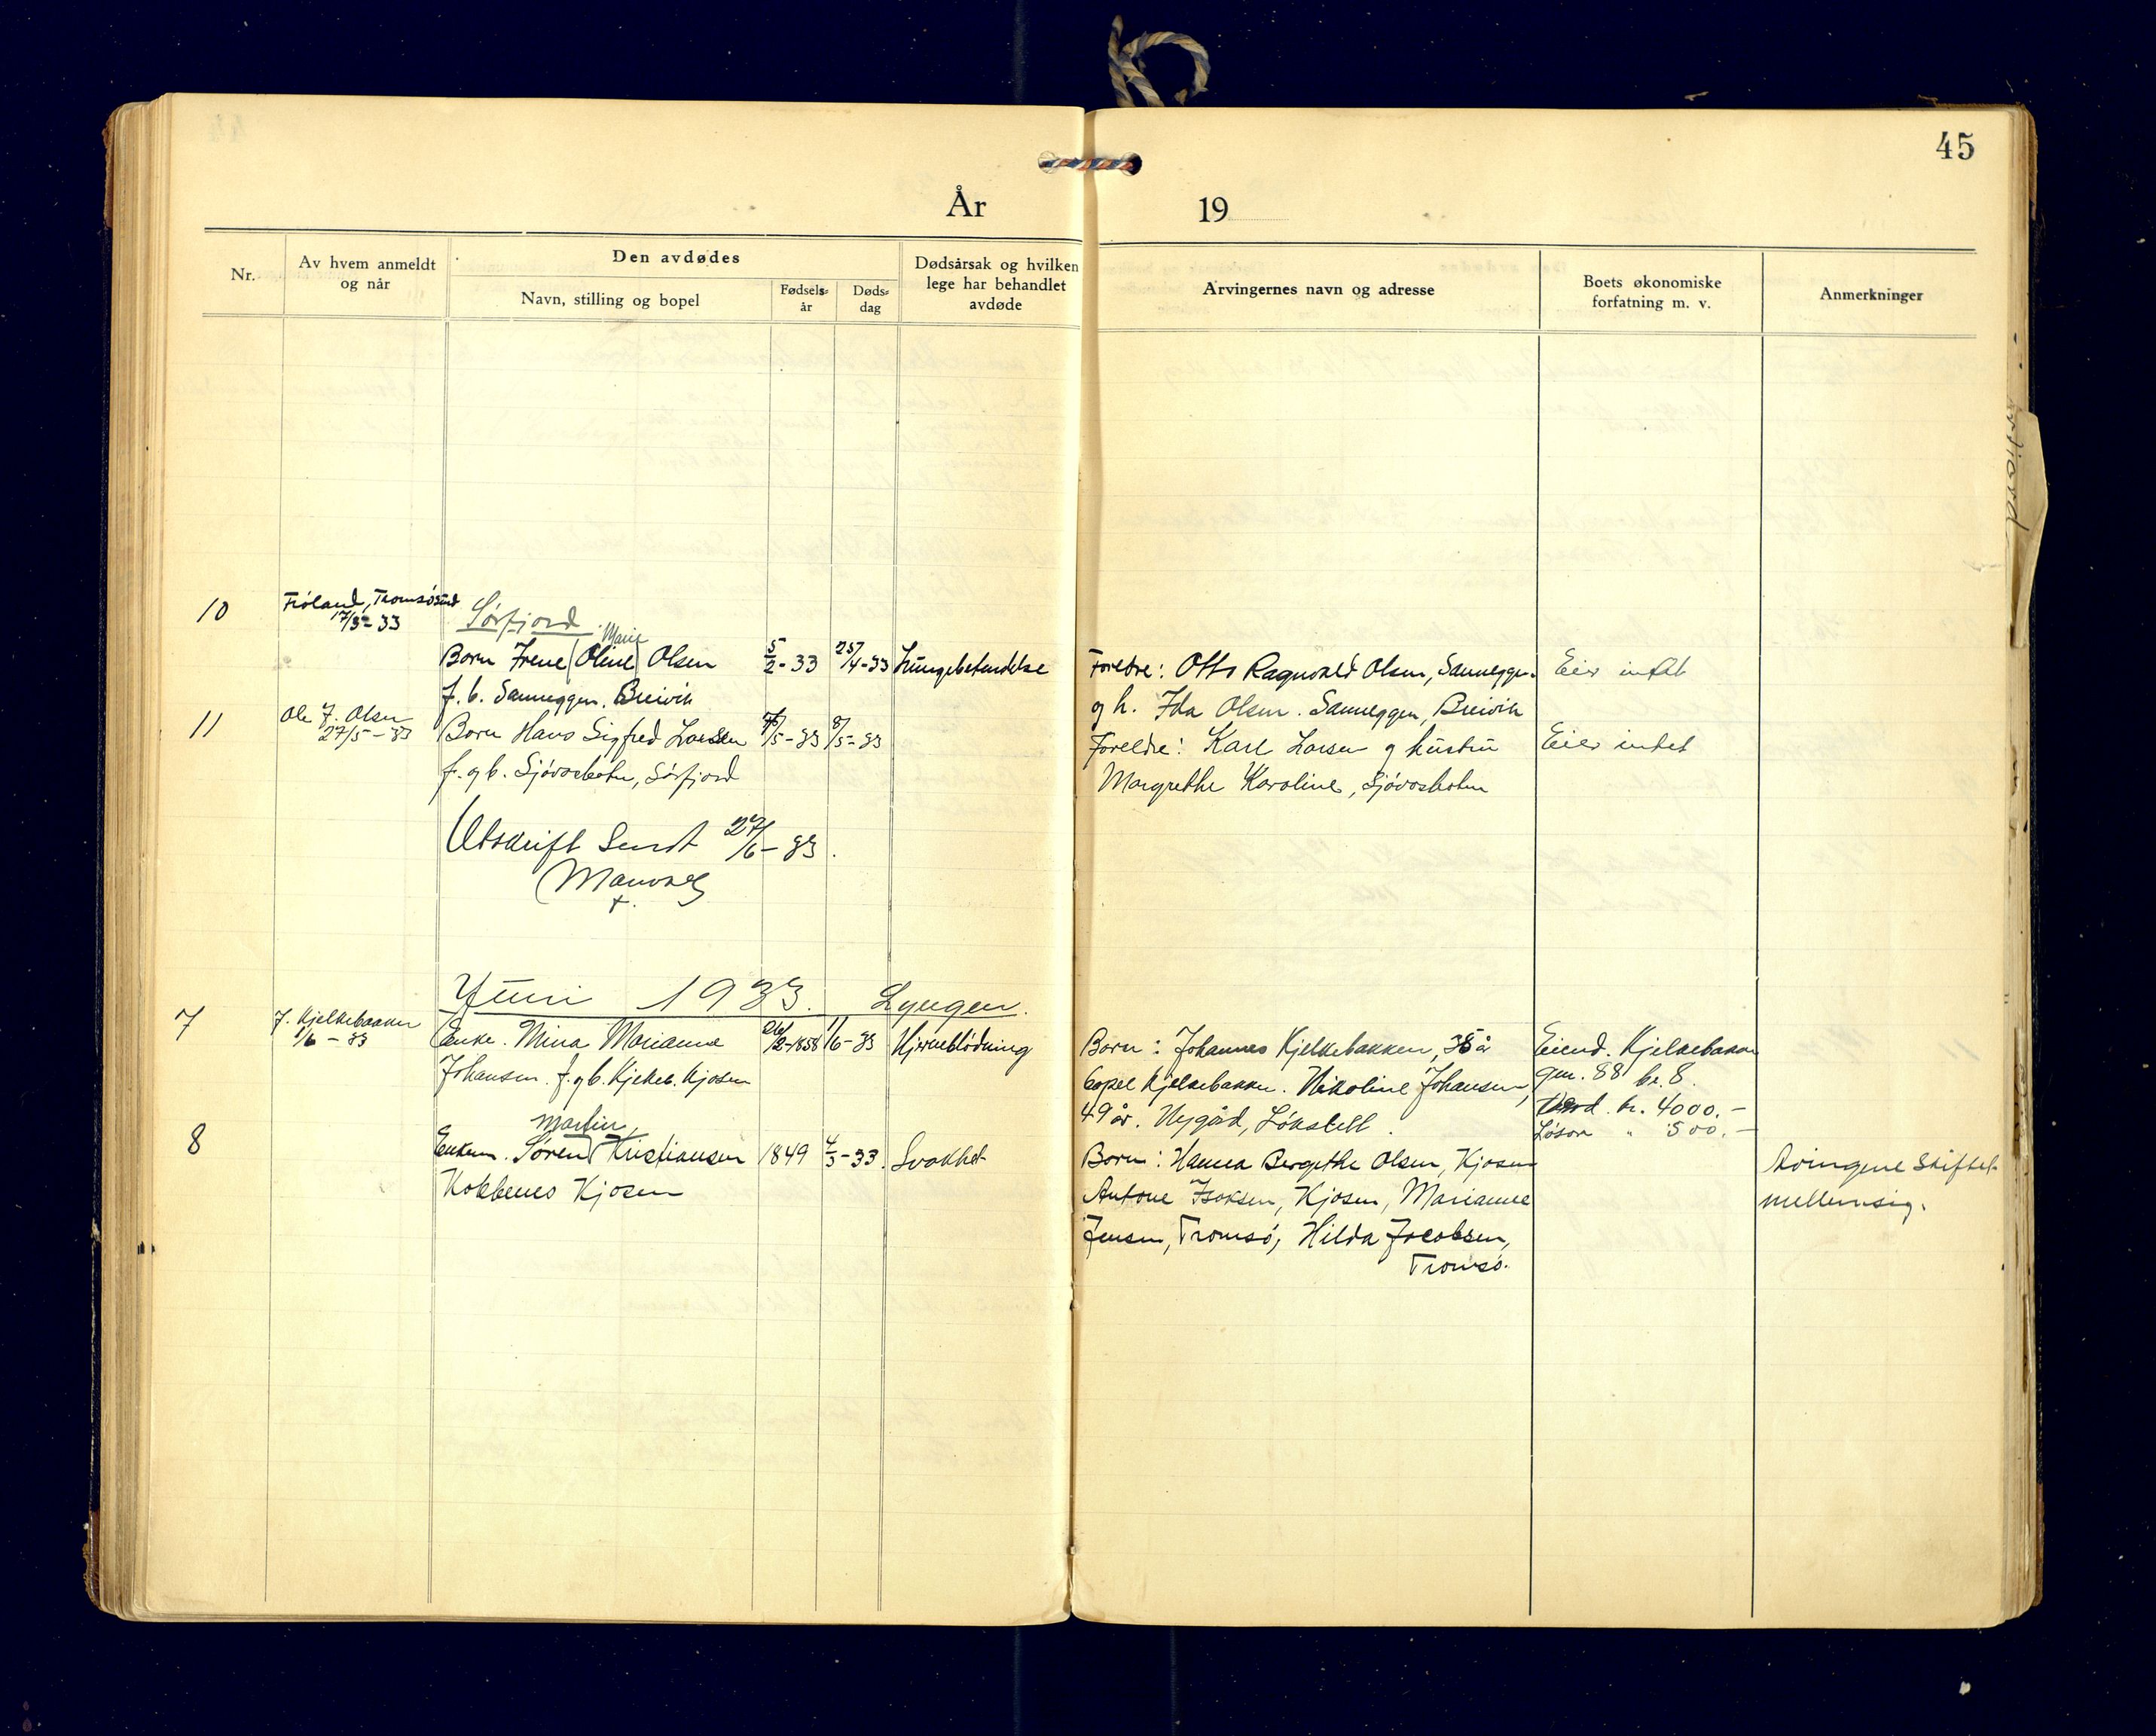 45
År 19
Nr.
Av hvem anmeldt
og når
Den avdødes
Navn, stilling og bopel
Fødsels-
år
Døds-
dag
Dødsårsak og hvilken
lege har behandlet
avdøde
Arvingernes navn og adresse
Boets økonomiske
forfatning m. v.
Anmerkninger
10
Tromsösund
17/5 - 33
Sørfjord
Marie
Barn Irene (Oline) Olsen 5/2 - 33 25/4 - 33 Lungebetendelse
f. b. Sanneggen, Breivik
Foreldre: Otto Ragnvald Olsen, Sanneggen
og h. Ida Olsen. Sanneggen, Breivik
Eier intet
11
Ole J. Olsen
27/5 - 33
Barn Hans Sigfred Larsen /5 - 33 8/5 - 33
f. og b. Sjövasbotn, Sörfjord
Foreldre: Karl Larsen og hustru
Margrethe Karoline, Sjövasbotn
Eier intet
Utskrift Sendt 27/6 - 33.
Juni 1933. Lyngen.
7
J. Kjelkebakken
1/6 - 33
Enke. Mina Marianne 26/2-1858 1/6 - 33 Hjerneblödning
Johansen. f. og b. Kjelkeb. Kjosen
Barn: Johannes Kjelkebakken, 38 år
bopel Kjelkebakken. Nikoline Johansen,
49 år. Nygård, Lökstell.
Eiend. Kjelkebakken
gnr. 88 br. 8.
Verd. kr. 4000.-
Lösøre " 500.-
8
Martin
Enkem. Søren Kristiansen 1849 4/3 - 33. Svakhet
Kobbenes Kjosen
Barn: Hanna Bergethe Olsen, Kjosen
Antone Isaksen, Kjosen, Marianne
Jensen, Tromsö, Hilda Jacobsen,
Tromsö.
Arvingene Skiftet
mellemsig.